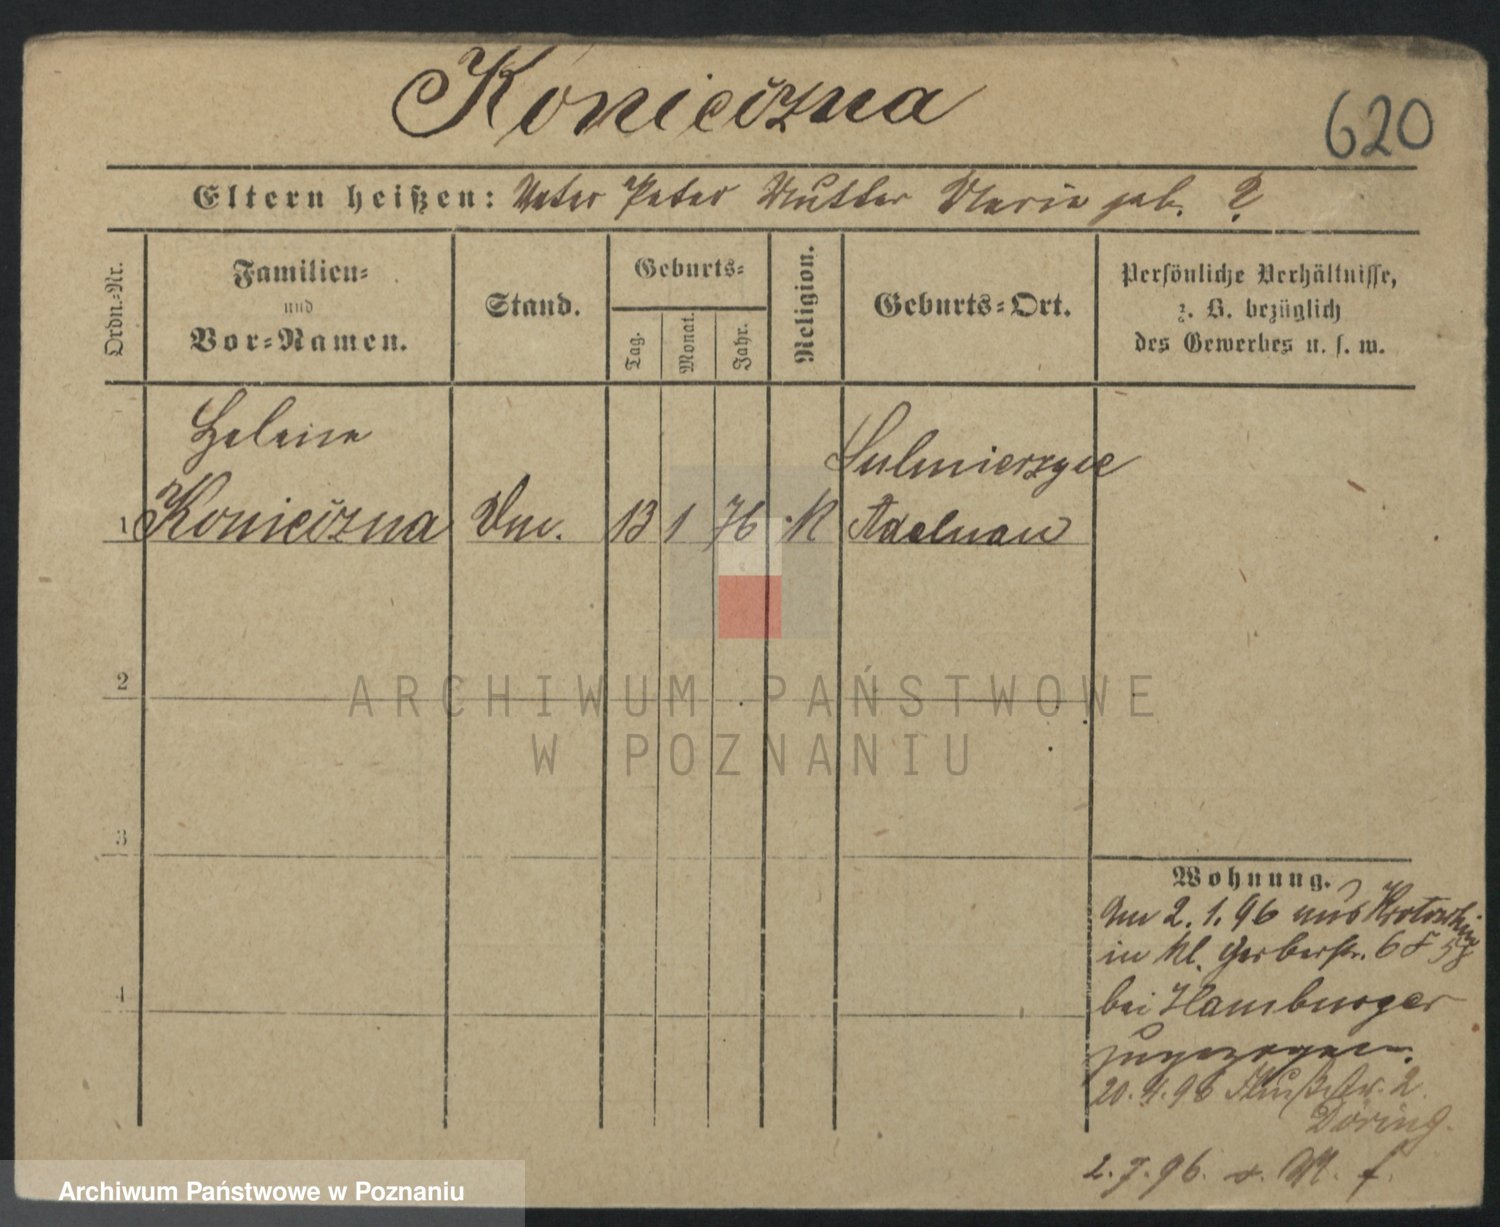 Koniečzna
620
Eltern heißen: Vater Peter Mutter Maria geb. ?
Ordn.-Nr.
Familien-
und
Vor-Namen.
Stand.
Geburts-
Tag.
Monat.
Jahr.
Religion.
Geburts-Ort.
Persönliche Verhältnisse,
z. B. bezüglich
des Gewerbes u. s. w.
Helene
Sulmierzyce
1 Koniečzna
13 1 76 K Adelnau
2
ARCHIWUM PAŃSTWOWE
W POZNANIU
3
Wohnung.
Am 2.1.96 aus Krotoschin
in Kl. Gerberstr. 6 58
4
bei Hamburger
zugezogen.
20.4.96 2
Döring.
2.7.96.
Archiwum Państwowe w Poznaniu